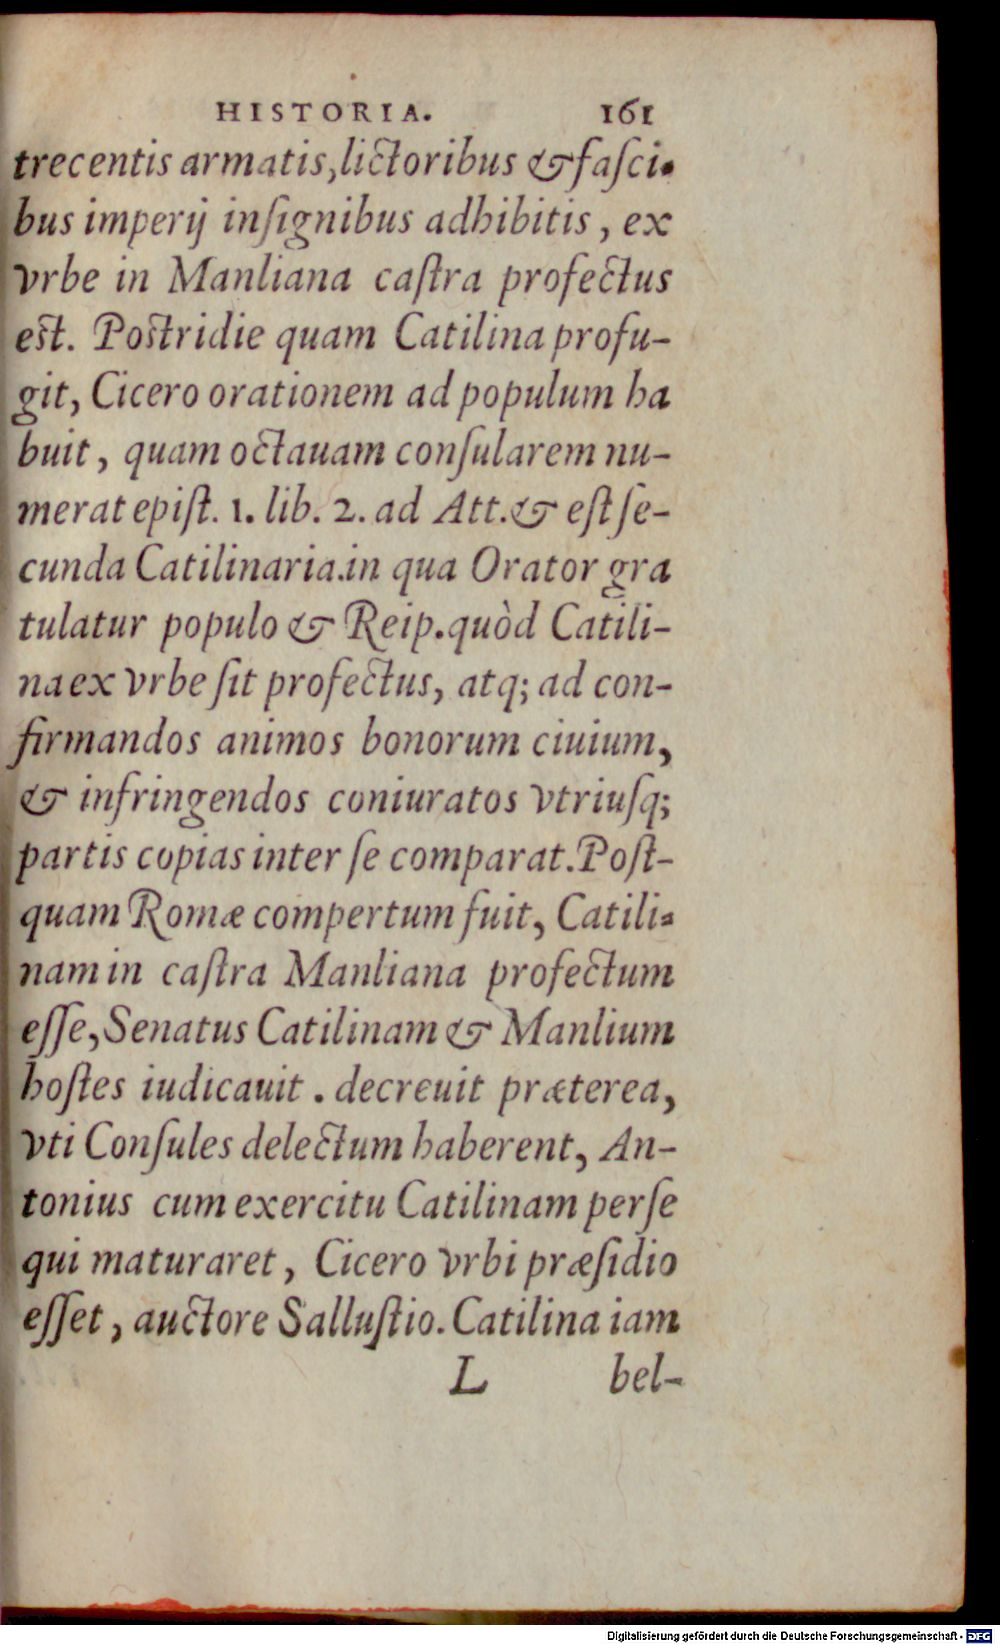 HISTORIA. 161
trecentis armatis,lictoribus &faſci-
bus imperij inſignibus adhibitis , ex
vrbe in Manliana caſtra profectus
est. Postridie quam Catilina profu-
git, Cicero orationem ad populum ha
buit , quam octauam conſularem nu-
merat epiſt. 1. lib. 2. ad Att.& eſt ſe-
cunda Catilinaria.in qua Orator gra
tulatur populo & Reip.quòd Catili-
na ex vrbe ſit profectus, atq; ad con-
firmandos animos bonorum ciuium,
& infringendos coniuratos vtriuſq;
partis copias inter ſe comparat.Poſt-
quam Romæ compertum fuit, Catili-
nam in caſtra Manliana profectum
eſſe,Senatus Catilinam & Manlium
hoſtes iudicauit . decreuit præterea,
vti Conſules delectum haberent, An-
tonius cum exercitu Catilinam perſe
qui maturaret , Cicero vrbi præſidio
eſſet , auctore Salluſtio. Catilina iam
L bel-
Digitalisierung gefördert durch die Deutsche Forschungsgemeinschaft - DFG